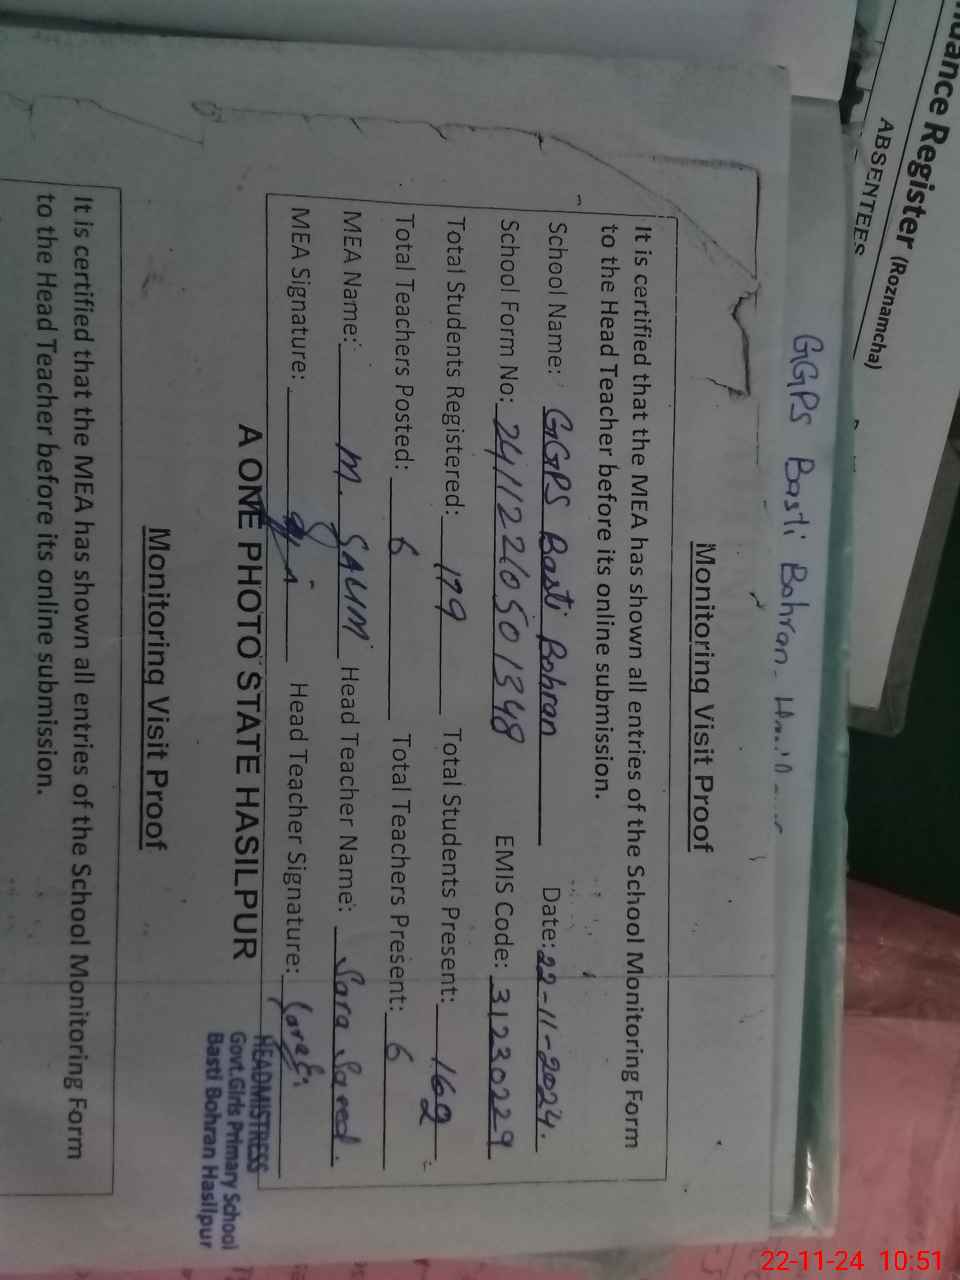 uance Register (Roznamcha)
ABSENTEES
GGPS Basti Bohran
Monitoring Visit Proof
It is certified that the MEA has shown all entries of the School Monitoring Form
to the Head Teacher before its online submission.
School Name: GGPS Basti Bohran Date: 22-11-2024.
School Form No: 24112210501348 EMIS Code: 31230229
Total Students Registered: 179 Total Students Present: 162
Total Teachers Posted: 6 Total Teachers Present: 6
MEA Name: M. SALIM Head Teacher Name: Sara Saeed.
MEA Signature: Head Teacher Signature:
A ONE PHOTO STATE HASILPUR
HEADMISTRESS
Govt.Girls Primary School
Basti Bohran Hasilpur
Monitoring Visit Proof
It is certified that the MEA has shown all entries of the School Monitoring Form
to the Head Teacher before its online submission.
22-11-24 10:51